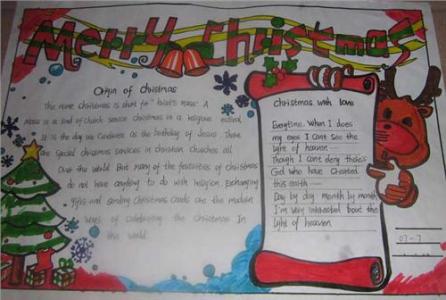 Merry Christmas
Origin of Christmas
The name Christmas is short for "Christ's mass". A
Mass is a kind of church service Christmas is a religious
It is the day we Celebrate as the birthday of Jesus. There
are special Christmas services in Christian Churches all
over the world. But many of the festivities of Christmas
do not have anything to do with religion. Exchanging
gifts and sending Christmas Cards are the modern
ways of celebrating the Christmas in
the world.
Christmas with love
Everytime. When I does
my eyes I can't see the
light of heaven
Though I can't deny
God who have created
this earth
Day by day month by month
I'm very interested bout the
light of heaven
07-7